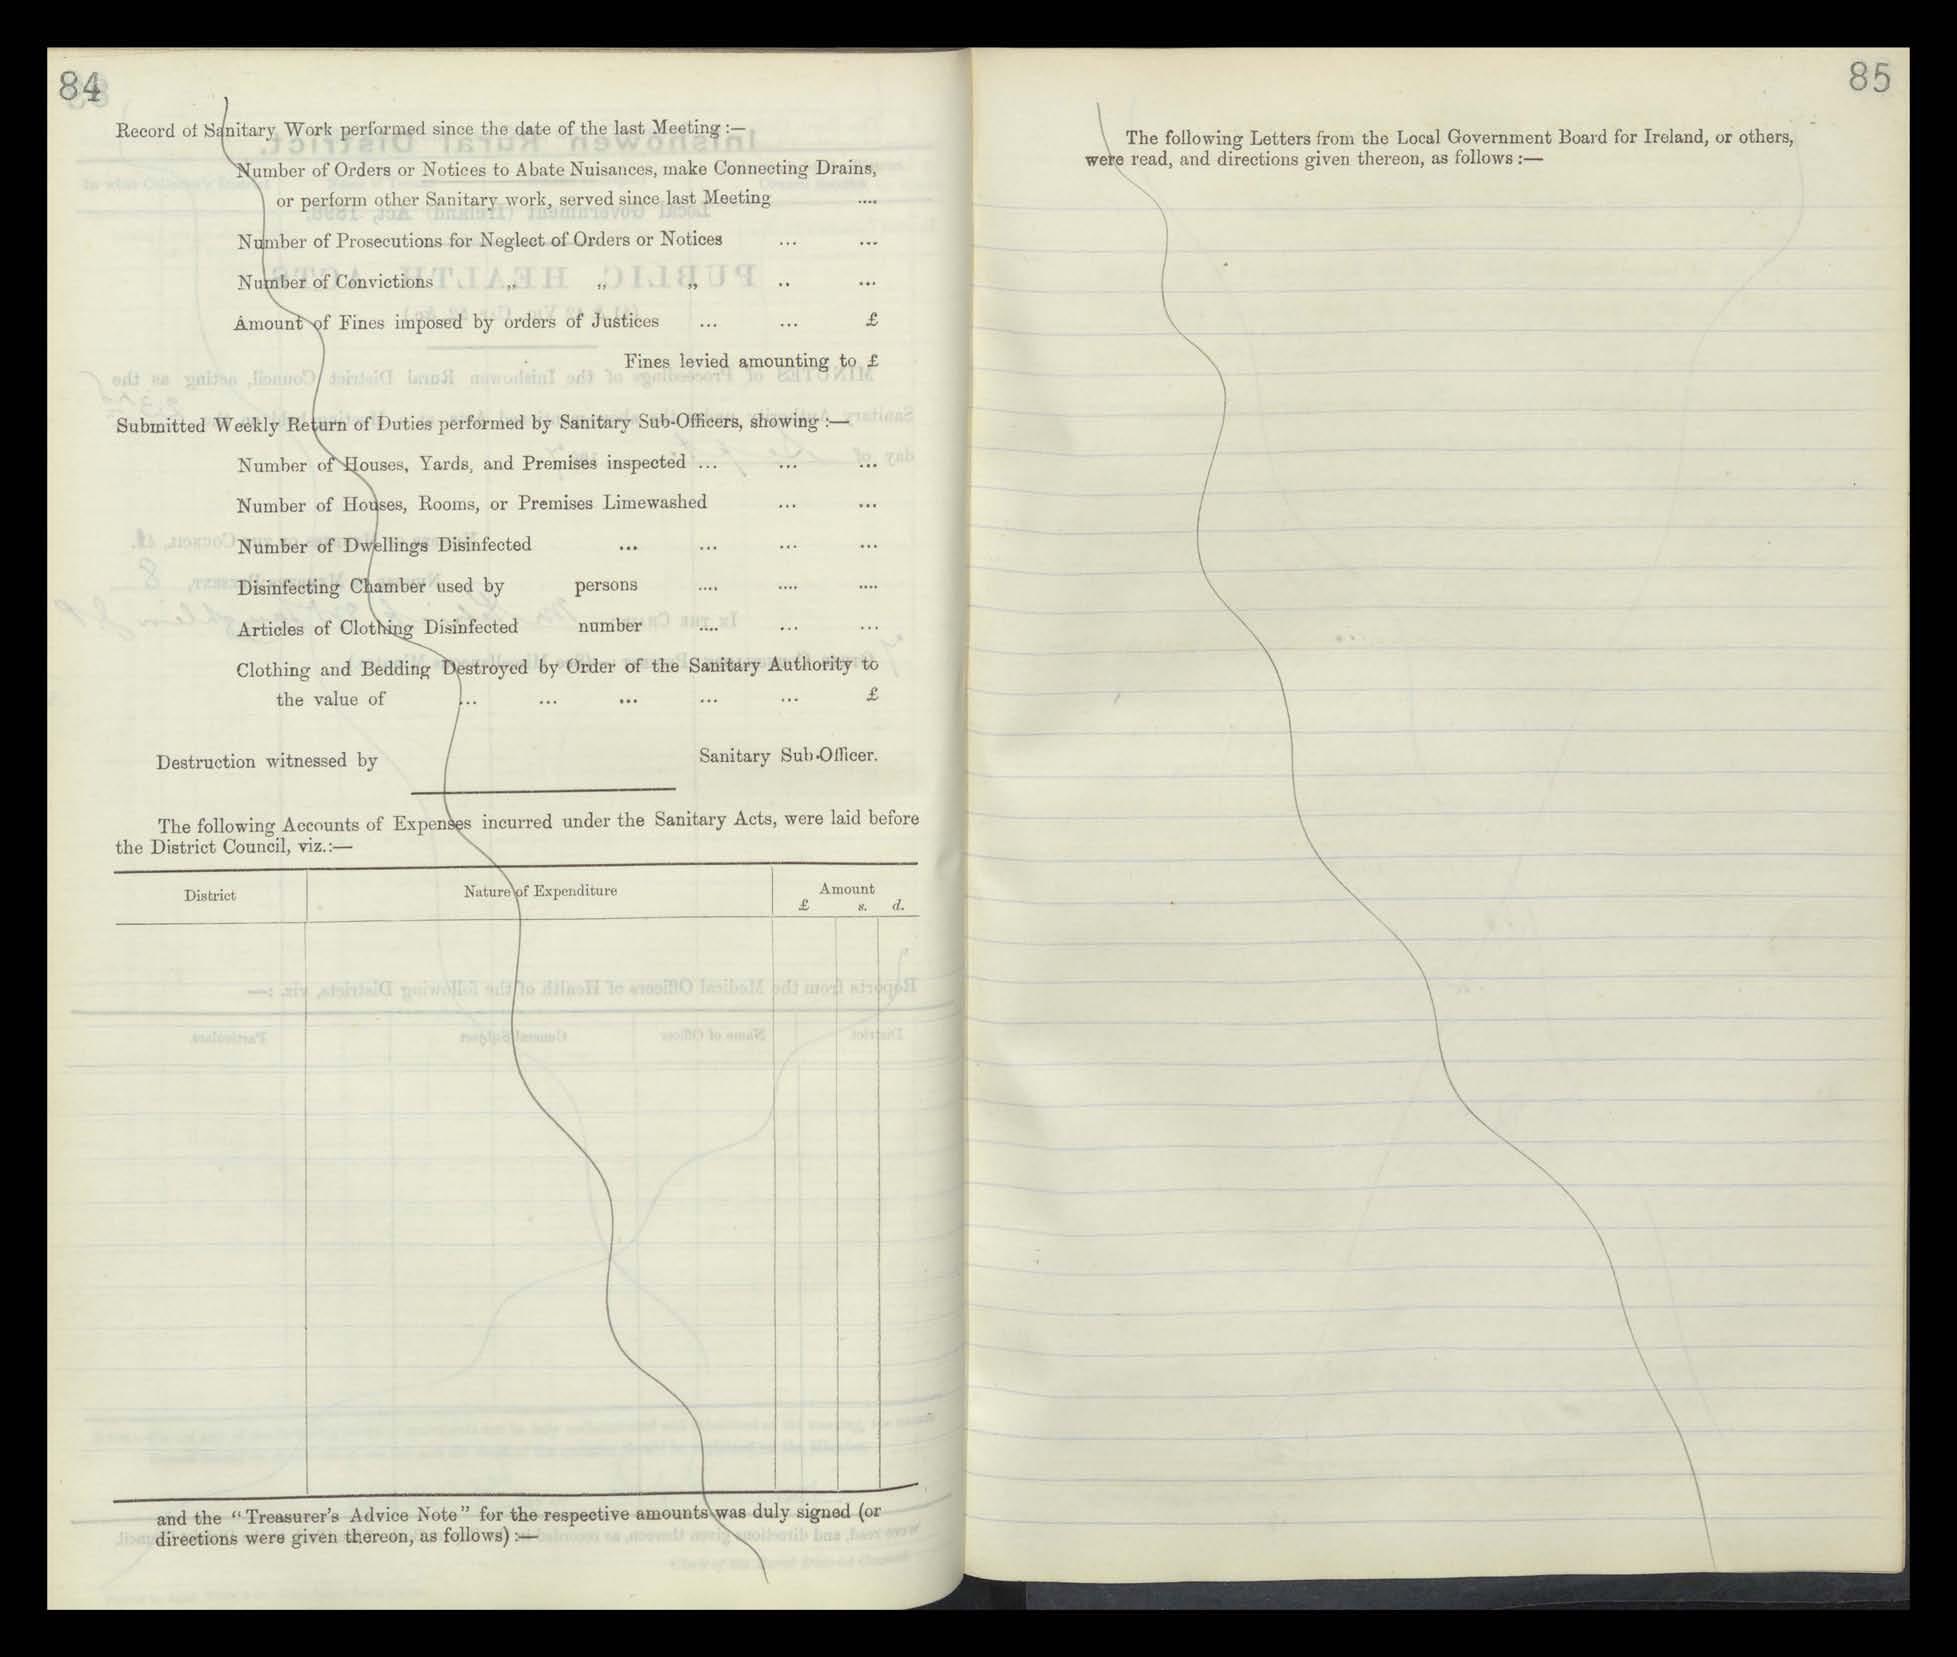 84
Record of Sanitary Work performed since the date of the last Meeting :—
Number of Orders or Notices to Abate Nuisances, make Connecting Drains,
or perform other Sanitary work, served since last Meeting ....
Number of Prosecutions for Neglect of Orders or Notices ... ...
Number of Convictions „ „ „ .. ...
Amount of Fines imposed by orders of Justices ... ... £
Fines levied amounting to £
Submitted Weekly Return of Duties performed by Sanitary Sub-Officers, showing :—
Number of Houses, Yards, and Premises inspected ... ... ...
Number of Houses, Rooms, or Premises Limewashed ... ...
Number of Dwellings Disinfected ... ... ... ...
Disinfecting Chamber used by persons .... .... ....
Articles of Clothing Disinfected number .... ... ...
Clothing and Bedding Destroyed by Order of the Sanitary Authority to
the value of ... ... ... ... ... £
Destruction witnessed by Sanitary Sub-Officer.
The following Accounts of Expenses incurred under the Sanitary Acts, were laid before
the District Council, viz.:—
District Nature of Expenditure Amount
£ s. d.
and the "Treasurer's Advice Note" for the respective amounts was duly signed (or
directions were given thereon, as follows) :—
85
The following Letters from the Local Government Board for Ireland, or others,
were read, and directions given thereon, as follows :—